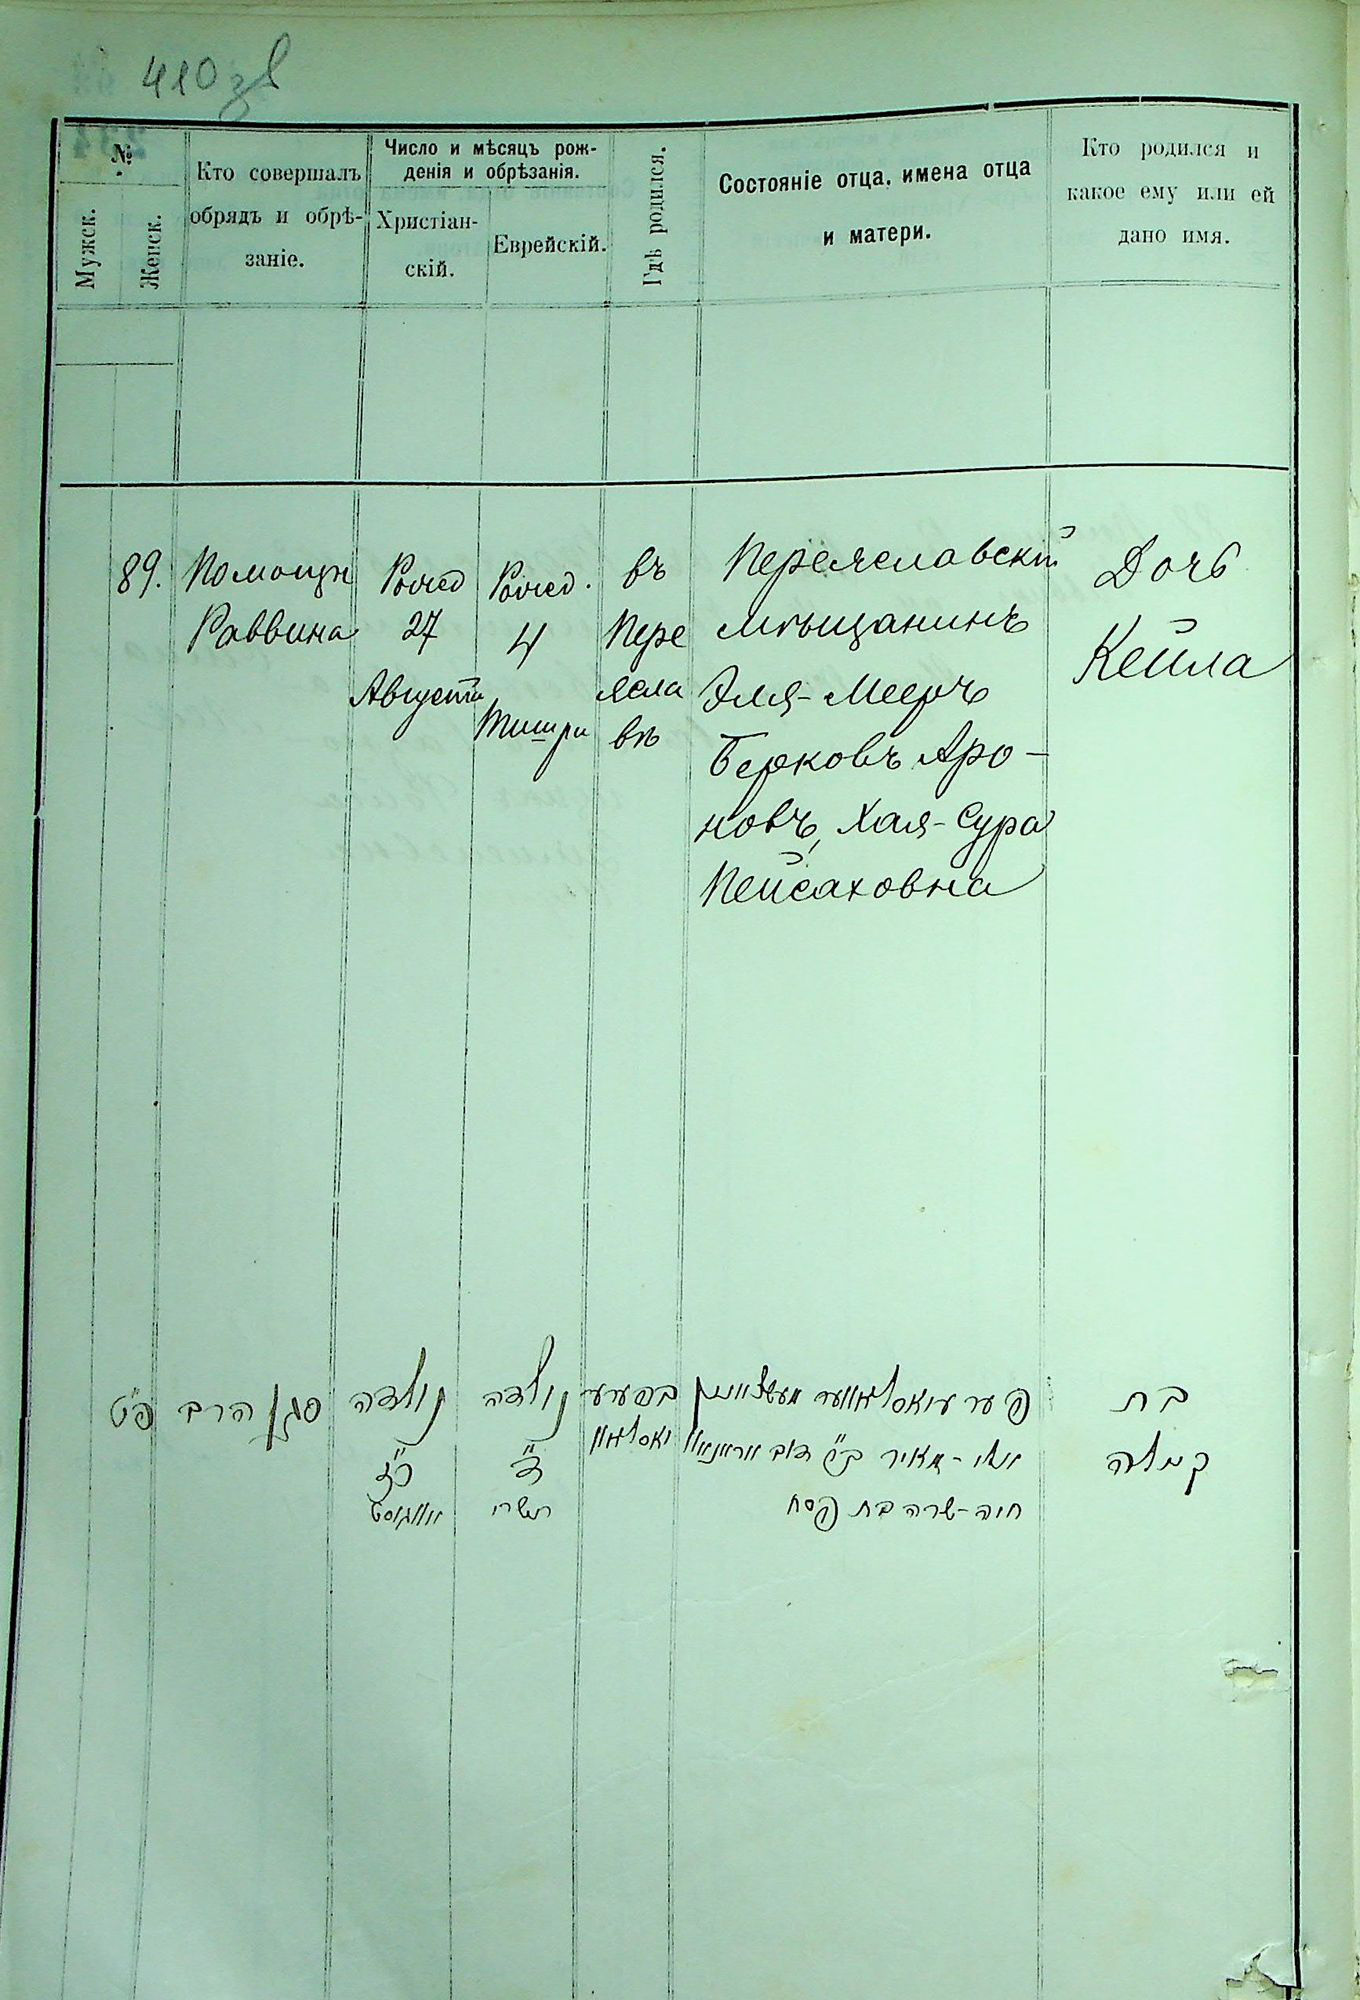 410 зв
№
Мужск.
Женск.
Кто совершалъ
обрядъ и обрѣ-
заніе.
Число и мѣсяцъ рож-
денія и обрѣзанія.
Христіан-
скій.
Еврейскій.
Гдѣ родился.
Состояніе отца, имена отца
и матери.
Кто родился и
какое ему или ей
дано имя.
89.
Помощн
Раввина
Рожд
27
Августа
Рожд.
4
Тишри
въ
Пере
ясла
вѣ
Переяславскій
мѣщанинъ
Эля-Мееръ
Берковъ Аро-
новъ, Хая-Сура
Пейсаховна
Дочь
Кейла
פ״ט
סגן הרב
נולדה
כ״ז
אווגוסט
נולדה
ד״
תשרי
בפערע
יאסלאוו
מאיר ב״ר דוב
חיה-שרה בת פסח
בת
קיילה